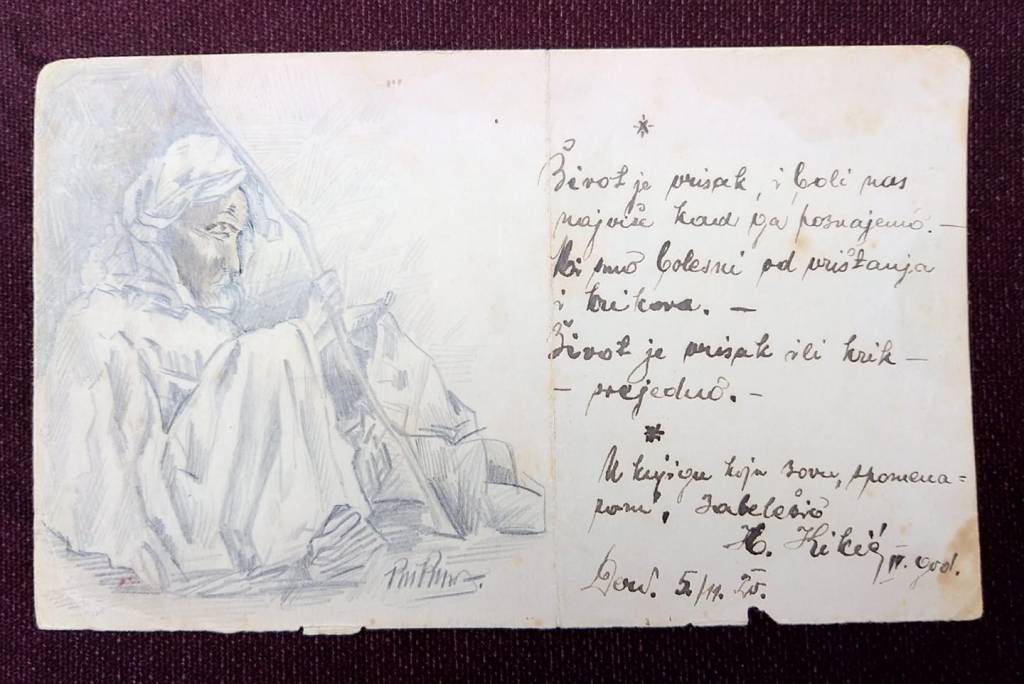 *
Život je vrisak, i boli nas
najviše kad ga poznajemo. —
Mi smo bolesni od vrištanja
i krikova. —
Život je vrisak ili krik —
— svejedno. —
*
U knjigu koju zovu „spomena=
rom", zabeležio
H. Kikić
IV. god.
5./11. 25.